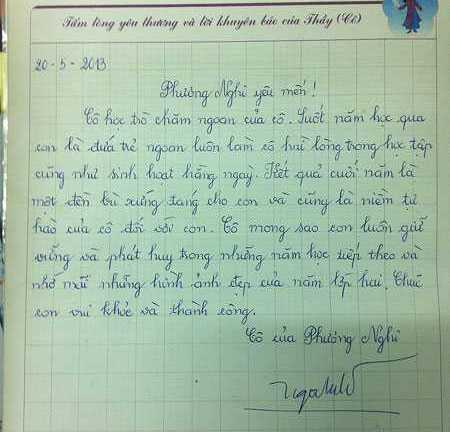 Tấm lòng yêu thương và lời khuyên bảo của Thầy (Cô)
20 - 5 - 2013
Phương Nghi yêu mến !
Cô học trò chăm ngoan của cô. Suốt năm học qua
con là đứa trẻ ngoan luôn làm cô hài lòng trong học tập
cũng như sinh hoạt hằng ngày. Kết quả cuối năm là
một đền bù xứng đáng cho con và cũng là niềm tự
hào của cô đối với con. Cô mong sao con luôn giữ
vững và phát huy trong những năm học tiếp theo và
nhớ mãi những hình ảnh đẹp của năm lớp hai. Chúc
con vui khỏe và thành công.
Cô của Phương Nghi